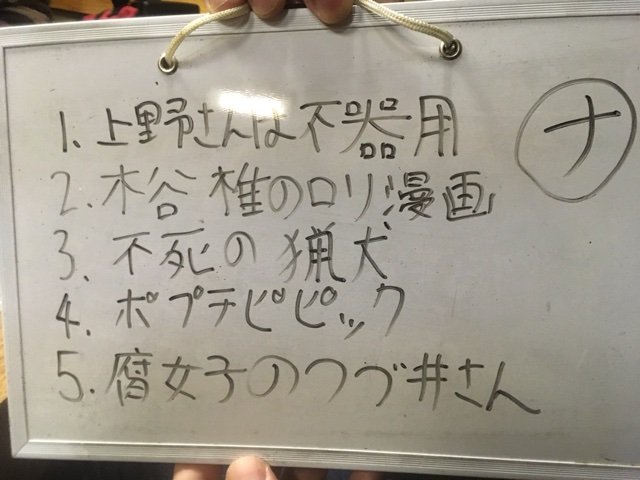 1. 上野さんは不器用
ナ
2. 木谷 椎のロリ漫画
3. 不死の猟犬
4. ポプテピピック
5. 腐女子のつづ井さん